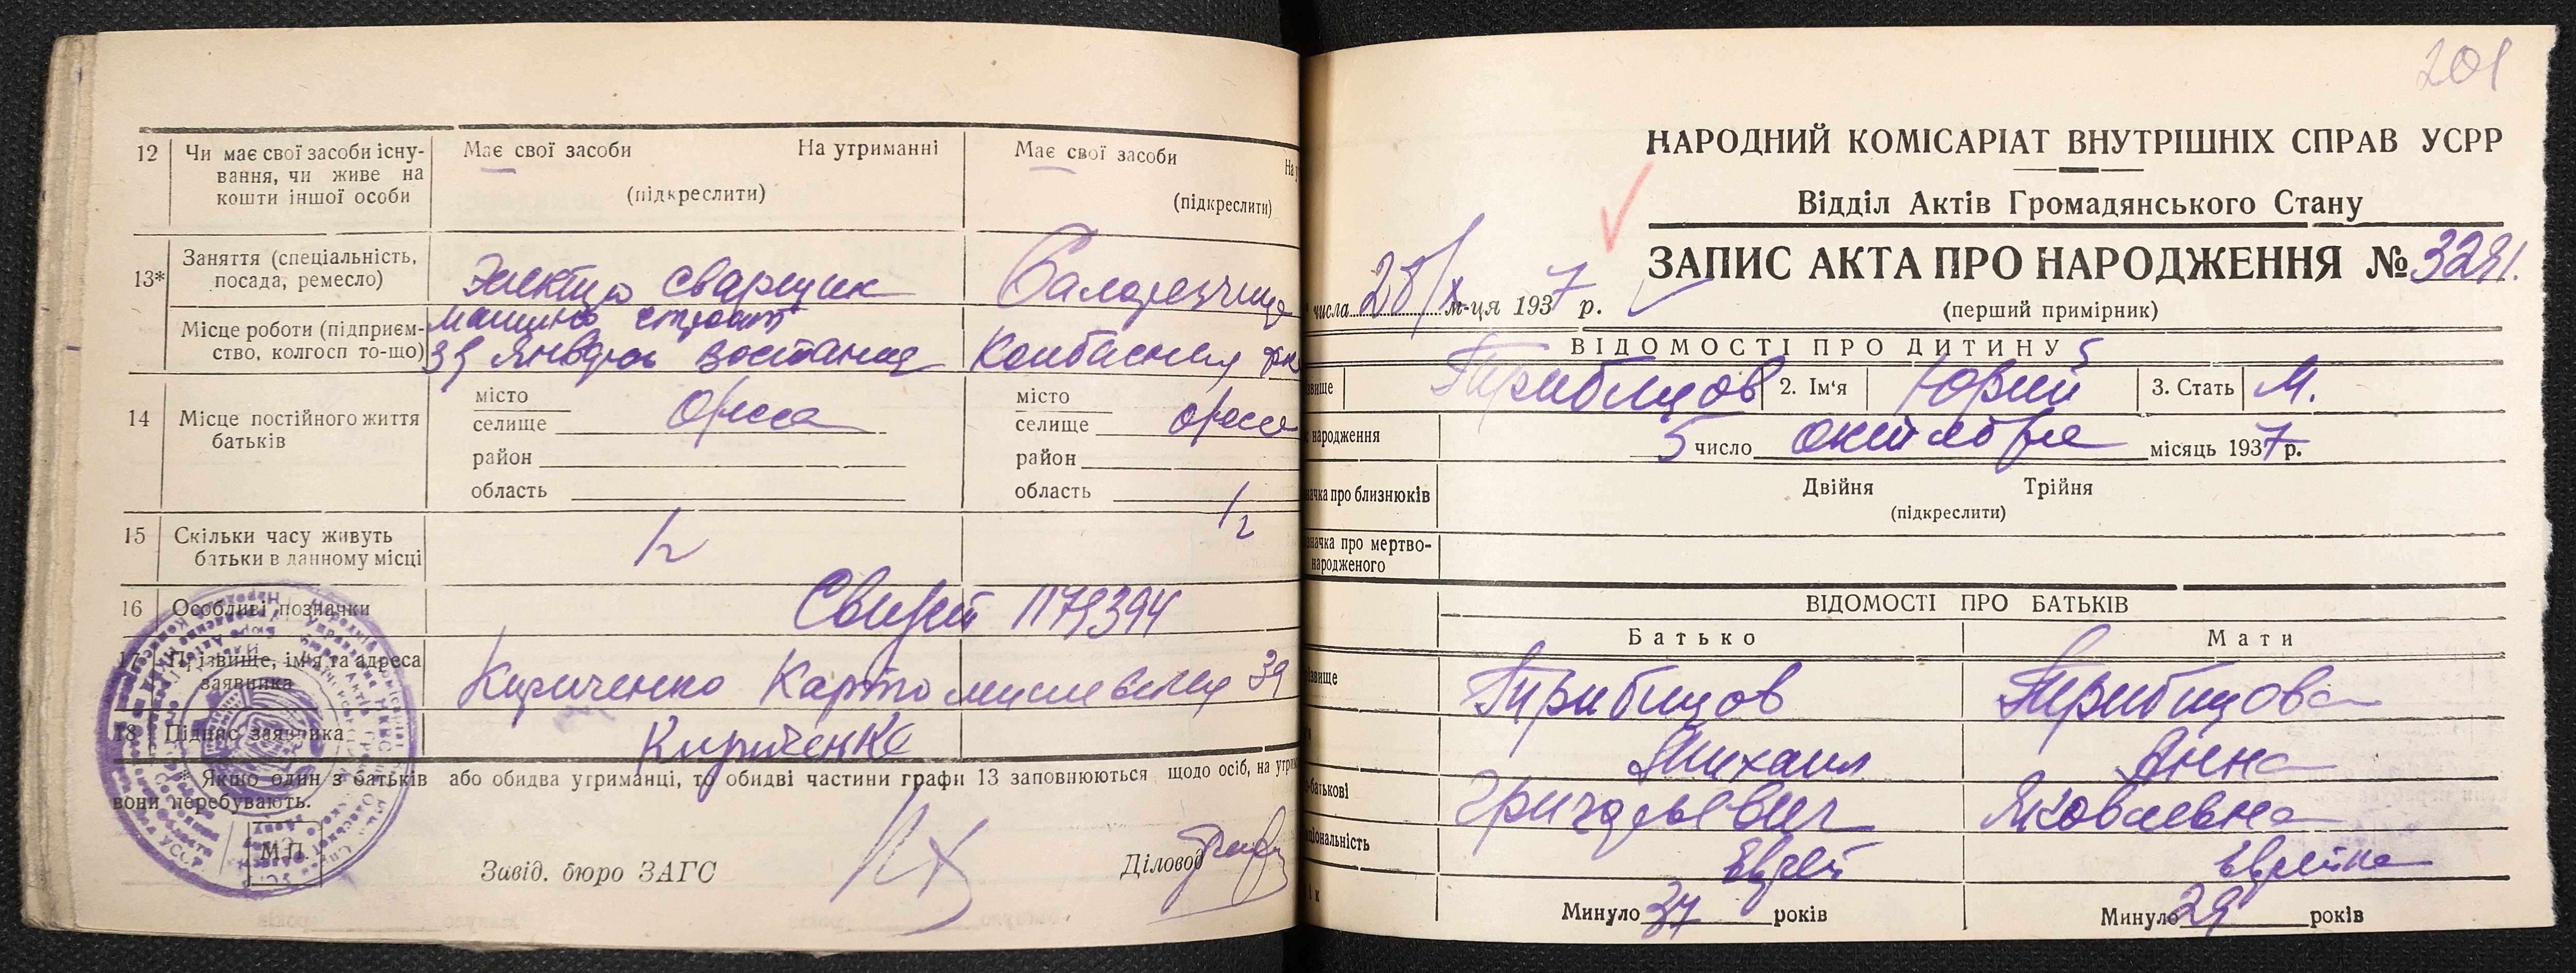 12 Чи має свої засоби існу-
вання, чи живе на
кошти іншої особи
Має свої засоби На утриманні
(підкреслити)
Має свої засоби На у
(підкреслити)
13* Заняття (спеціальність,
посада, ремесло)
Электро сварщик
Місце роботи (підприєм-
ство, колгосп то-що)
машино строит
Января востания
Колбасная
14 Місце постійного життя
батьків
місто
селище Одесса
район
область
місто
селище Одесса
район
область
15 Скільки часу живуть
батьки в данному місці
16 Особливі позначки
1179394
17 Прізвище, ім'я та адреса
заявника
Кириченко Картамишевская 39
18 Підпис заявника
Кириченко
* Якщо один з батьків або обидва утриманці, то обидві частини графи 13 заповнюються щодо осіб, на утрим
вони перебувають.
М.П.
Завід. бюро ЗАГС
Діловод
201
НАРОДНИЙ КОМІСАРІАТ ВНУТРІШНІХ СПРАВ УСРР
Відділ Актів Громадянського Стану
ЗАПИС АКТА ПРО НАРОДЖЕННЯ № 3291.
числа 28/X м-ця 1937 р.
(перший примірник)
ВІДОМОСТІ ПРО ДИТИНУ
звище Трибинцов 2. Ім'я Юрий 3. Стать М.
народження 5 число октября місяць 1937 р.
начка про близнюків
Двійня Трійня
(підкреслити)
значка про мертво-
народженого
ВІДОМОСТІ ПРО БАТЬКІВ
Батько Мати
ізвище
Михаил Анна
-батькові
Григорьевич Яковлевна
ціональність
Еврей Еврейка
ік
Минуло 37 років
Минуло 29 років